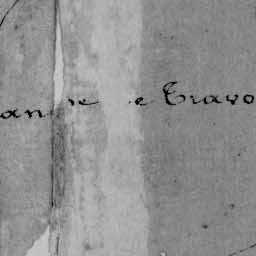 an ne e Travo